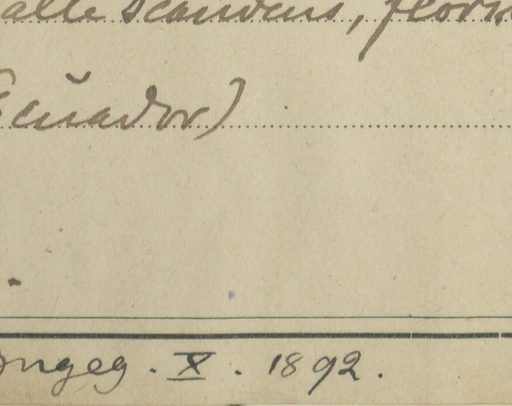 alte scandens, flor
Ecuador)
ingeg. X. 1892.